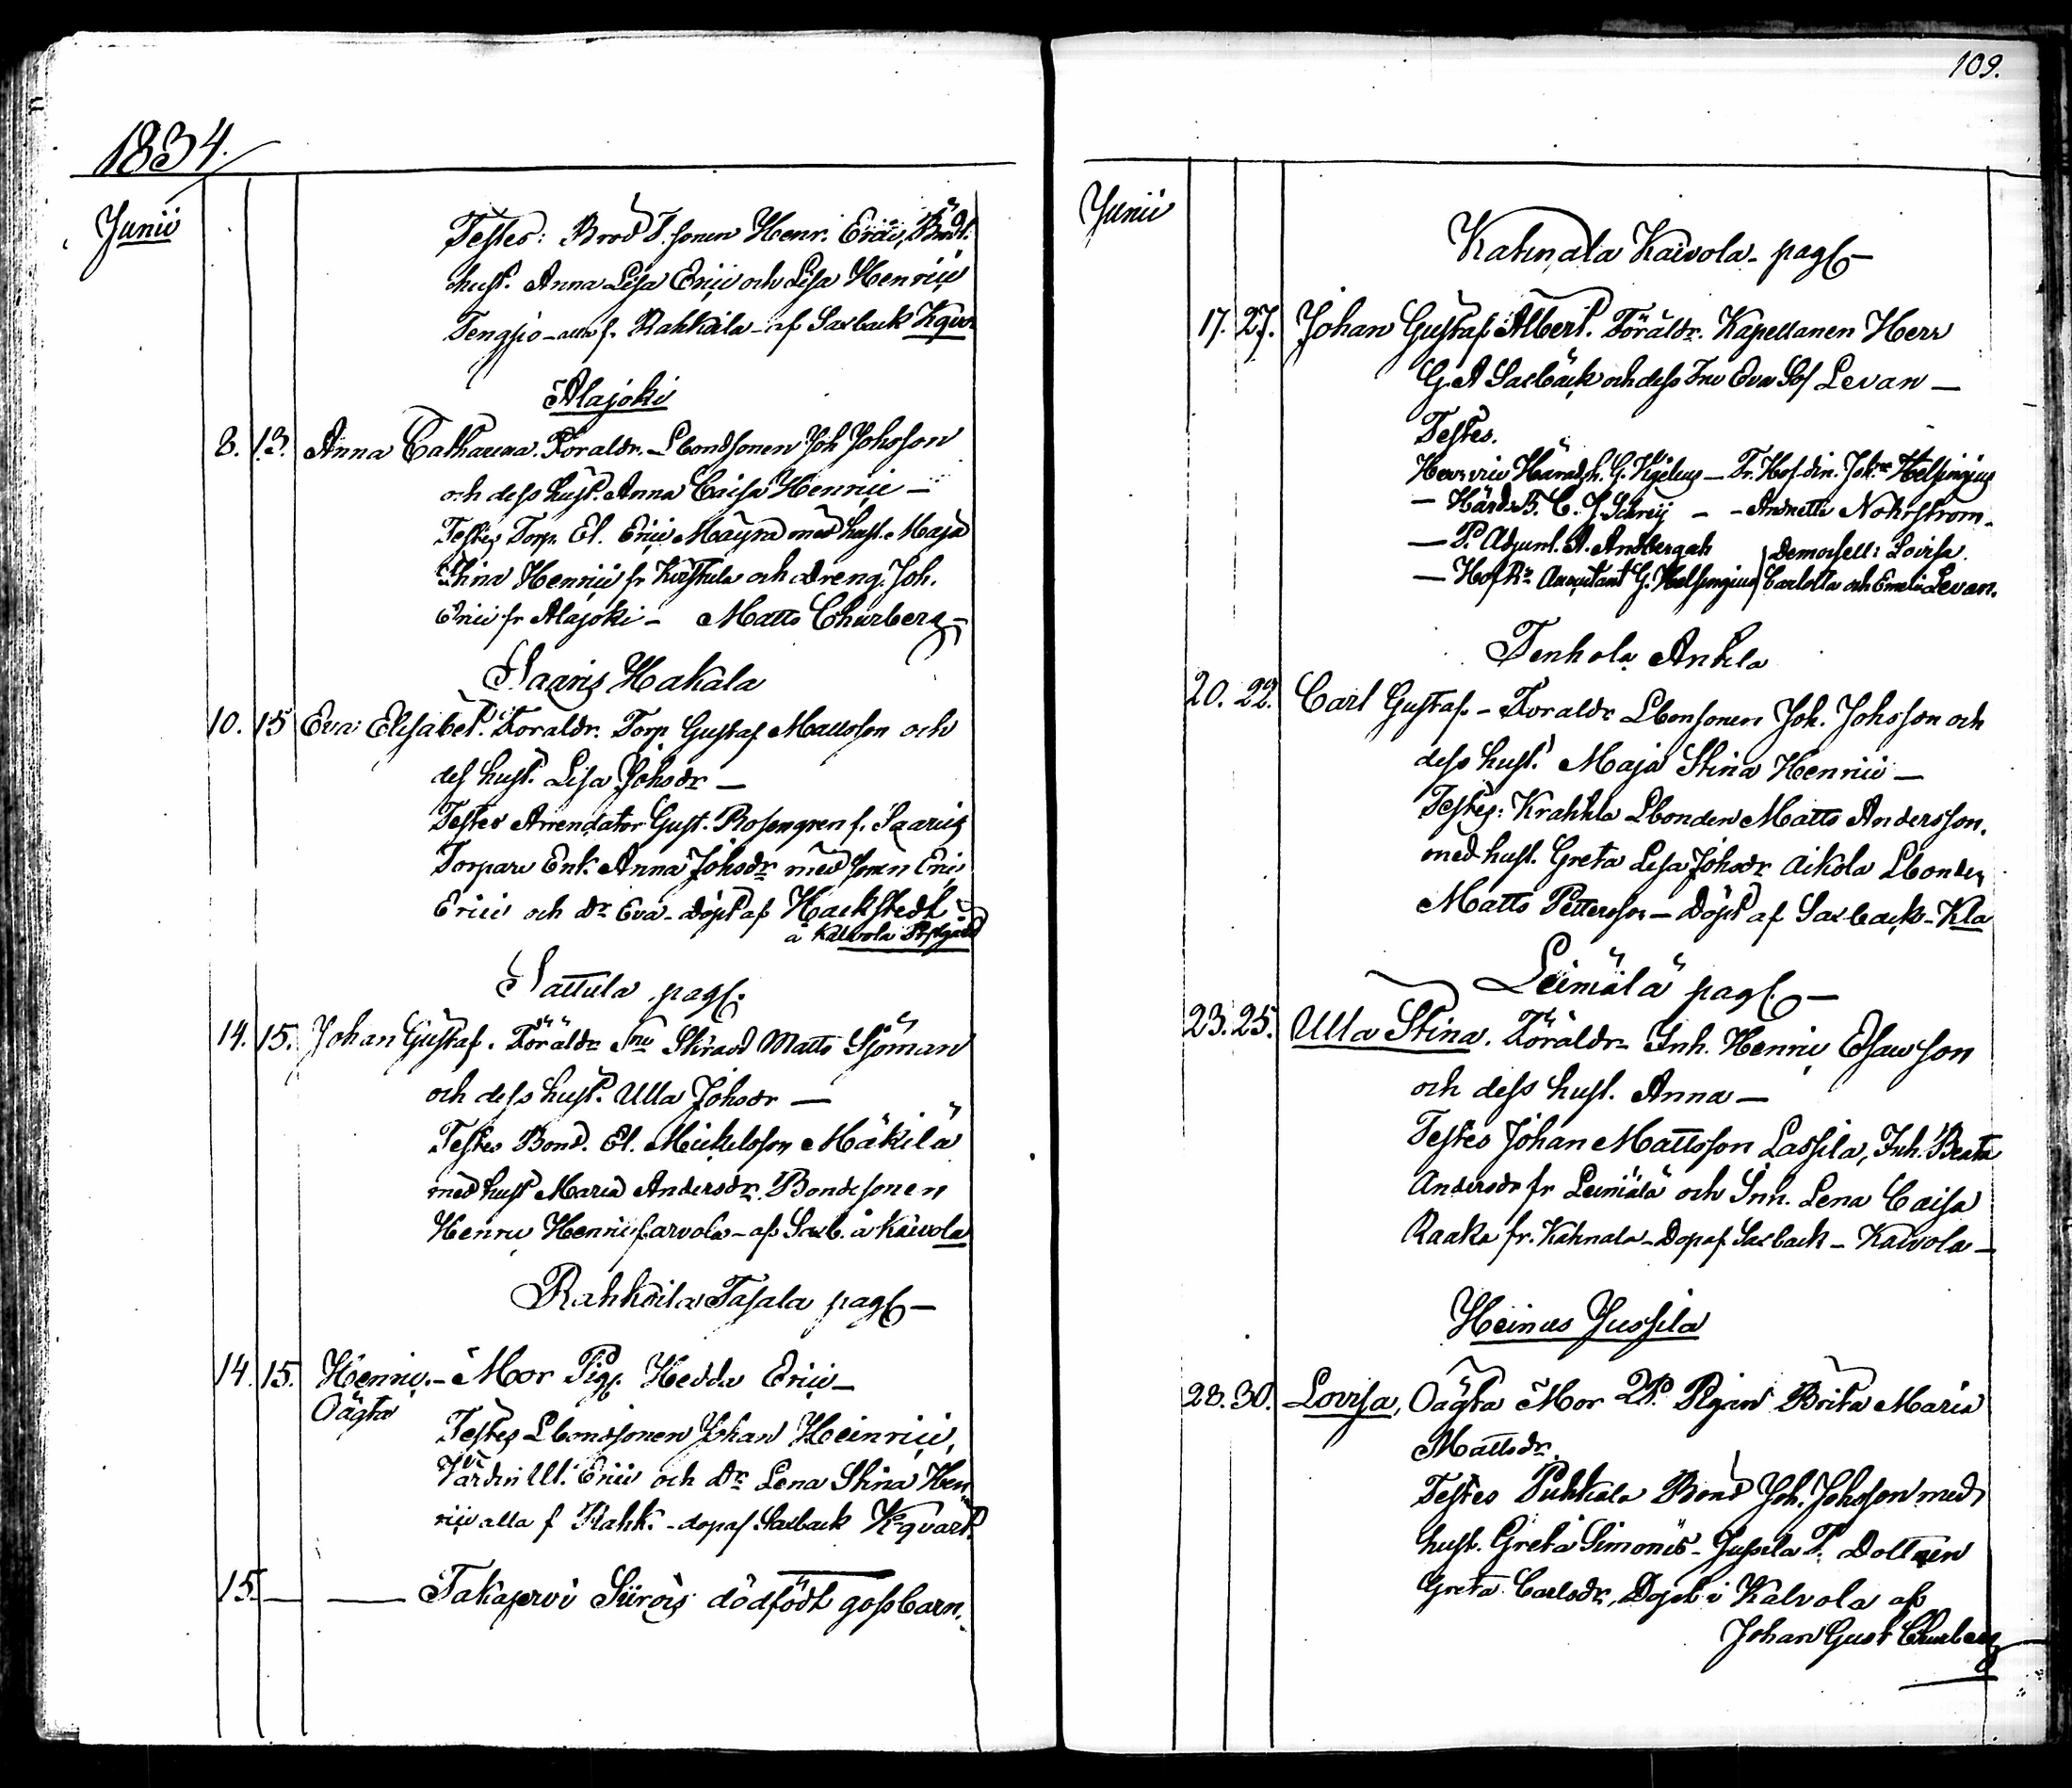 1834.
Junii
Testes: Brod T. sonen Henr. Erici, Brodt.
hust. Anna Lisa Erici och Lisa Henrici
Tengsjo - alla f. Rahkoila - af Saxback Kqvar
Alajoki
8. 13. Anna Catharina. Foraldr. - Lbondsonen Joh Johsson
och dess hust. Anna Caisa Henrici -
Testes Torp. El. Erici Mäyrä med hust. Maja
Stina Henrici fr Kirstula och dreng. Joh.
Erici fr Alajoki - Matts Churberg -
Saaris Hakala
10. 15 Eva Elisabet. Foraldr. Torp Gustaf Mattsson och
dess hust. Lisa Johsdr -
Testes Arrendator Gust. Rosengren f. Saaris
Torpare Enk. Anna Johsdr med sonen Eric
Erici och dr Eva - döpt af Hackstedt
å Kalvola Prestgård
Sattula pagl.
14. 15. Johan Gustaf. Föräldr Skrädd Matts Sjöman
och dess hust. Ulla Johsdr -
Testes Bond. El. Mickelsson Mäkilä
med hust Maria Andersdr. Bondesonen
Henric Henrici Yarvola - af Saxb. å Kaivola
Rahkoila Tasala pagl -
14. 15. Henric. - Mor Pig. Hedda Erici -
Oägta
Testes Lbondsonen Johan Heinrici,
Värdin Ul. Erici och dr Lena Stina Hen
rici alla f Rahk. - döp af Saxback Kqvart.
15. - - Takajervi Siirois dödfödt gossbarn.
109.
Junii
Kahnala Kaivola - pagl -
17. 27. Johan Gustaf Albert. Föräldr. Kapellanen Herr
G. A Saxbäck och dess Fru Eva Sof Levan -
Testes.
Herrar Häradsh. G. Kigelius - Fr. Hof-din. Joh:ne Helsingius
- Härds. C. J. Schreij - - Annette Nohrstrom -
- P. Adjunt. A. Andbergah Demoisell: Lovisa.
- Hof R:s Auscutant G. Helsingius Carlotta och Emelie Levan.
Tenhola Anttla
20. 22. Carl Gustaf. - Foraldr Lbonsonen Joh. Johsson och
dess hust. Maja Stina Henrici -
Testes: Krahkla Lbonden Matts Andersson.
med hust. Greta Lisa Johsdr Aikola Lbonden
Matts Pettersson - Döpt af Saxback - Kla
Leiniälä pagl. -
23. 25. Ulla Stina. Föräldr - Inh. Henric Esausson
och dess hust. Anna -
Testes Johan Mattsson Lassila, Inh. Beata
Andersdr fr Leiniälä och Inh. Lena Caisa
Raaka fr. Kahnala - Dop af Saxback - Kaivola -
Heinus Jussila
28. 30. Lovisa, Oägta Mor Pigan Brita Maria
Mattsdr.
Testes Puhkala Bond Joh. Johsson med
hust. Greta Simonis - Jussila T. Dottren
Greta Carlsdr, Döpt i Kalvola af
Johan Gust Churberg